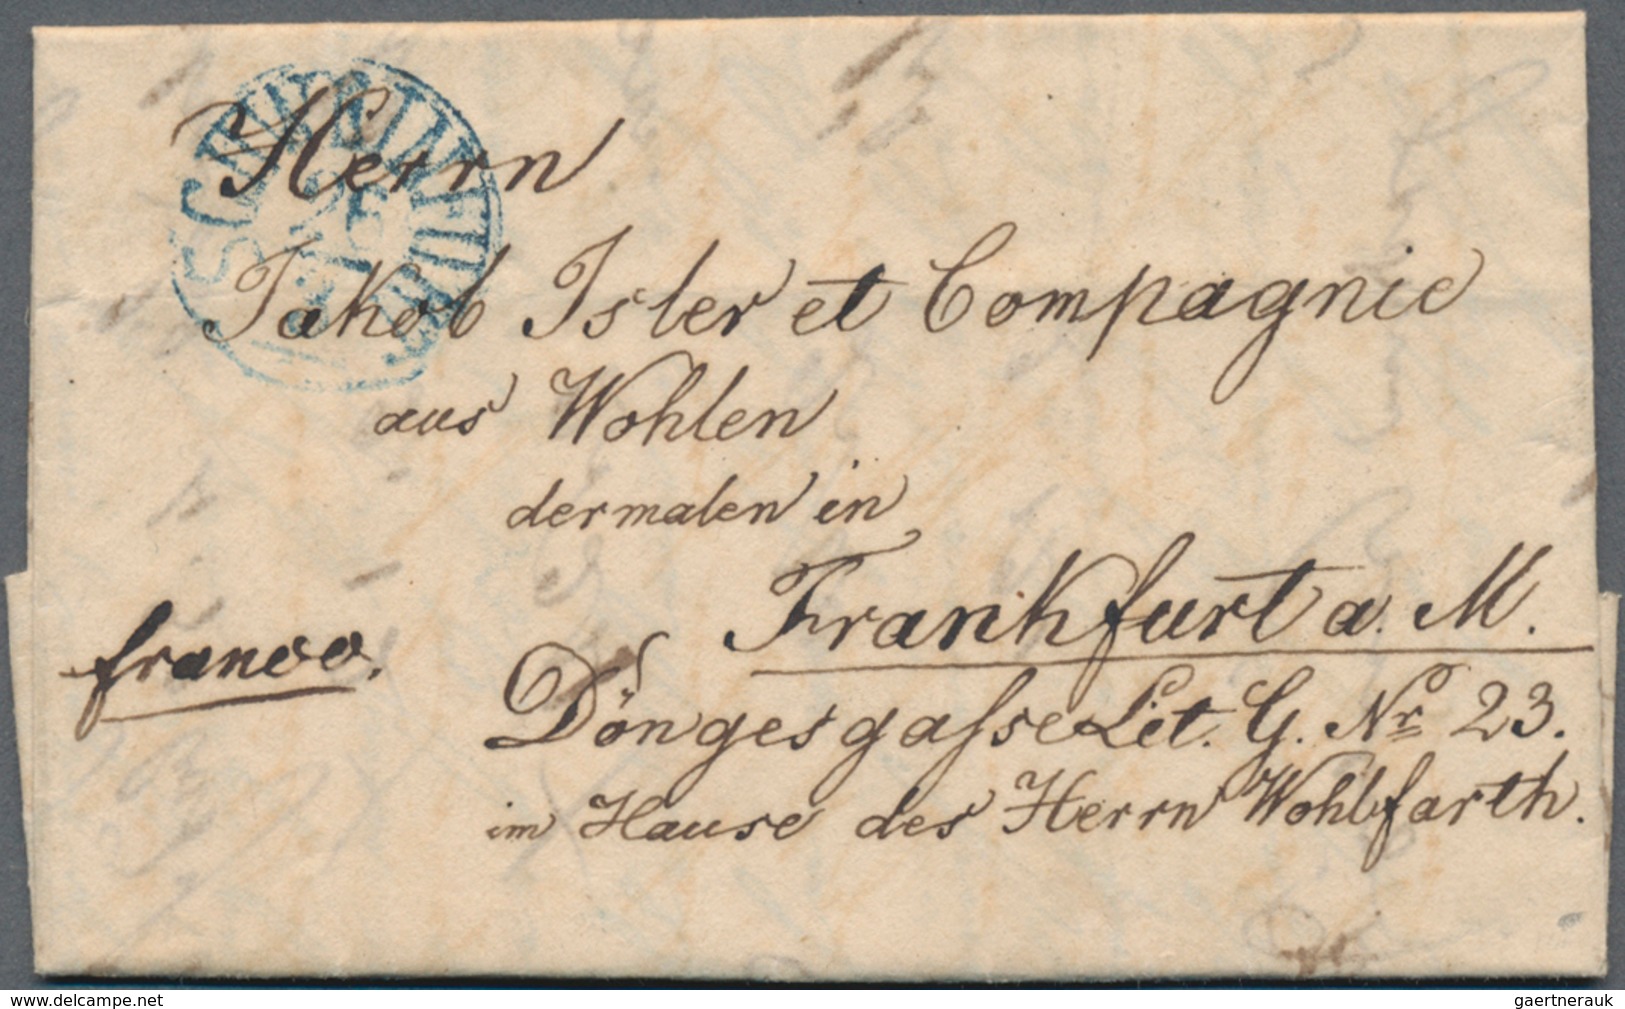 SCHWEINFURT
Herrn
Jakob Isler et Compagnie
aus Wohlen
dermalen in
Frankfurt a. M.
franco.
Döngesgasse Lit. G. Nr. 23.
im Hause des Herrn Wohlfarth.
www.delcampe.net
gaertnerauk